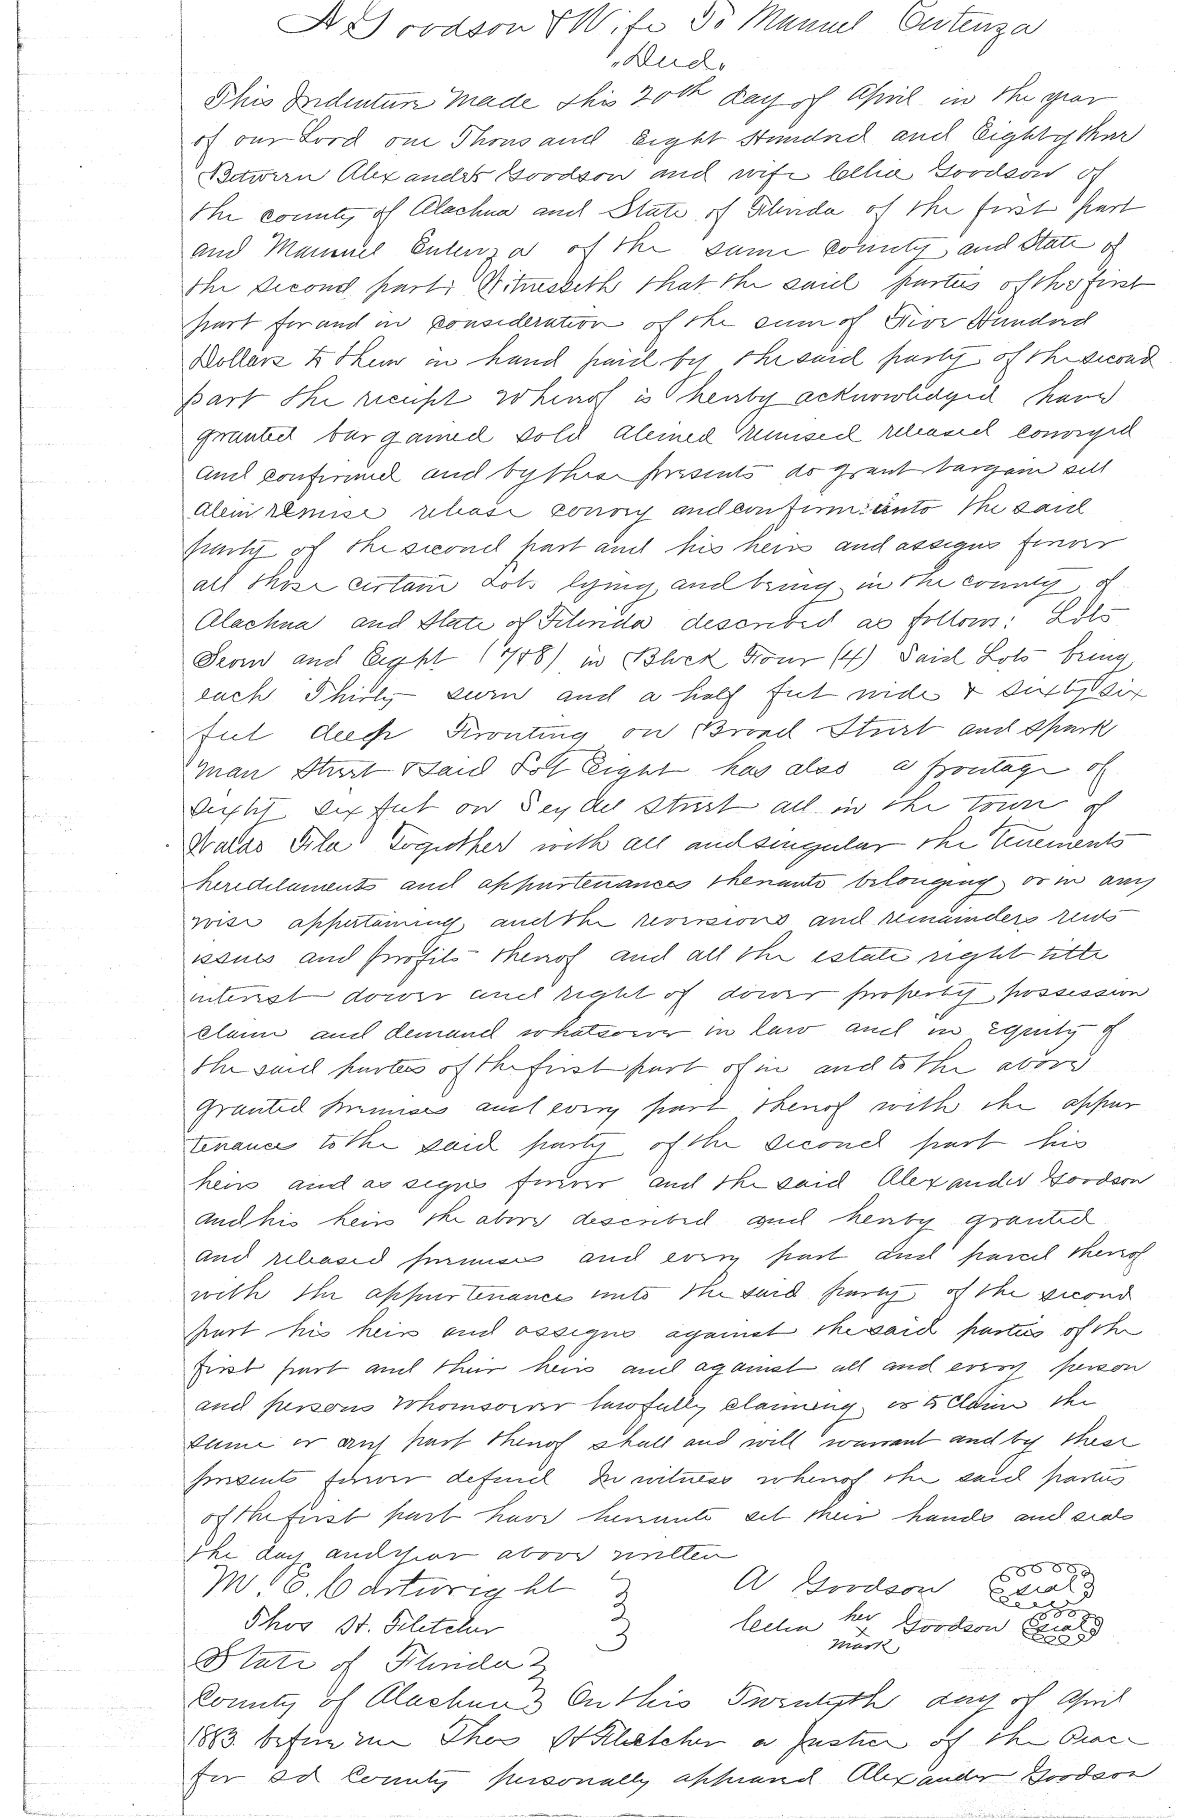 A Goodson & Wife To Manuel Entenza
"Deed"
This Indenture Made this 20th day of April in the year
of our Lord one Thousand Eight Hundred and Eighty three
Between Alexander Goodson and wife Celia Goodson of
the county of Alachua and State of Florida of the first part
and Manuel Entenza of the same county and State of
the second part: Witnesseth that the said parties of the first
part for and in consideration of the sum of Five Hundred
Dollars to them in hand paid by the said party of the second
part the receipt whereof is hereby acknowledged have
granted bargained sold aleined remised released conveyed
and confirmed and by these presents do grant bargain sell
alein remise release convey and confirm unto the said
party of the second part and his heirs and assigns forever
all those certain Lots lying and being in the county of
Alachua and State of Florida described as follows: Lots
Seven and Eight (7&8) in Block Four (4) Said Lots being
each Thirty seven and a half feet wide & sixty six
feet deep Fronting on Broad Street and Spark
man Street & Said Lot Eight has also a frontage of
Sixty six feet on Seydel Street all in the town of
Waldo Fla Together with all and singular the tenements
heredilaments and appurtenances thereunto belonging or in any
wise appertaining and the reversions and remainders rents
issues and profits thereof and all the estate right title
interest dower and right of dower property possession
claim and demand whatsoever in law and in Equity of
the said parties of the first part of in and to the above
granted premises and every part thereof with the appur
tenances to the said party of the second part his
heirs and assigns forever and the said Alexander Goodson
and his heirs the above described and hereby granted
and released premises and every part and parcel thereof
with the appurtenances unto the said party of the second
part his heirs and assigns against the said parties of the
first part and their heirs and against all and every person
and persons whomsoever lawfully claiming or to claim the
same or any part thereof shall and will warrant and by these
presents forever defend In witness whereof the said parties
of the first part have hereunto set their hands and seals
the day and year above written
M. E. Cartwright A Goodson seal
Thos H. Fletcher Celia her x mark Goodson seal
State of Florida
County of Alachua On this Twentyth day of April
1883 before me Thos H Fletcher a Justice of the Peace
for sd County personally appeared Alexander Goodson